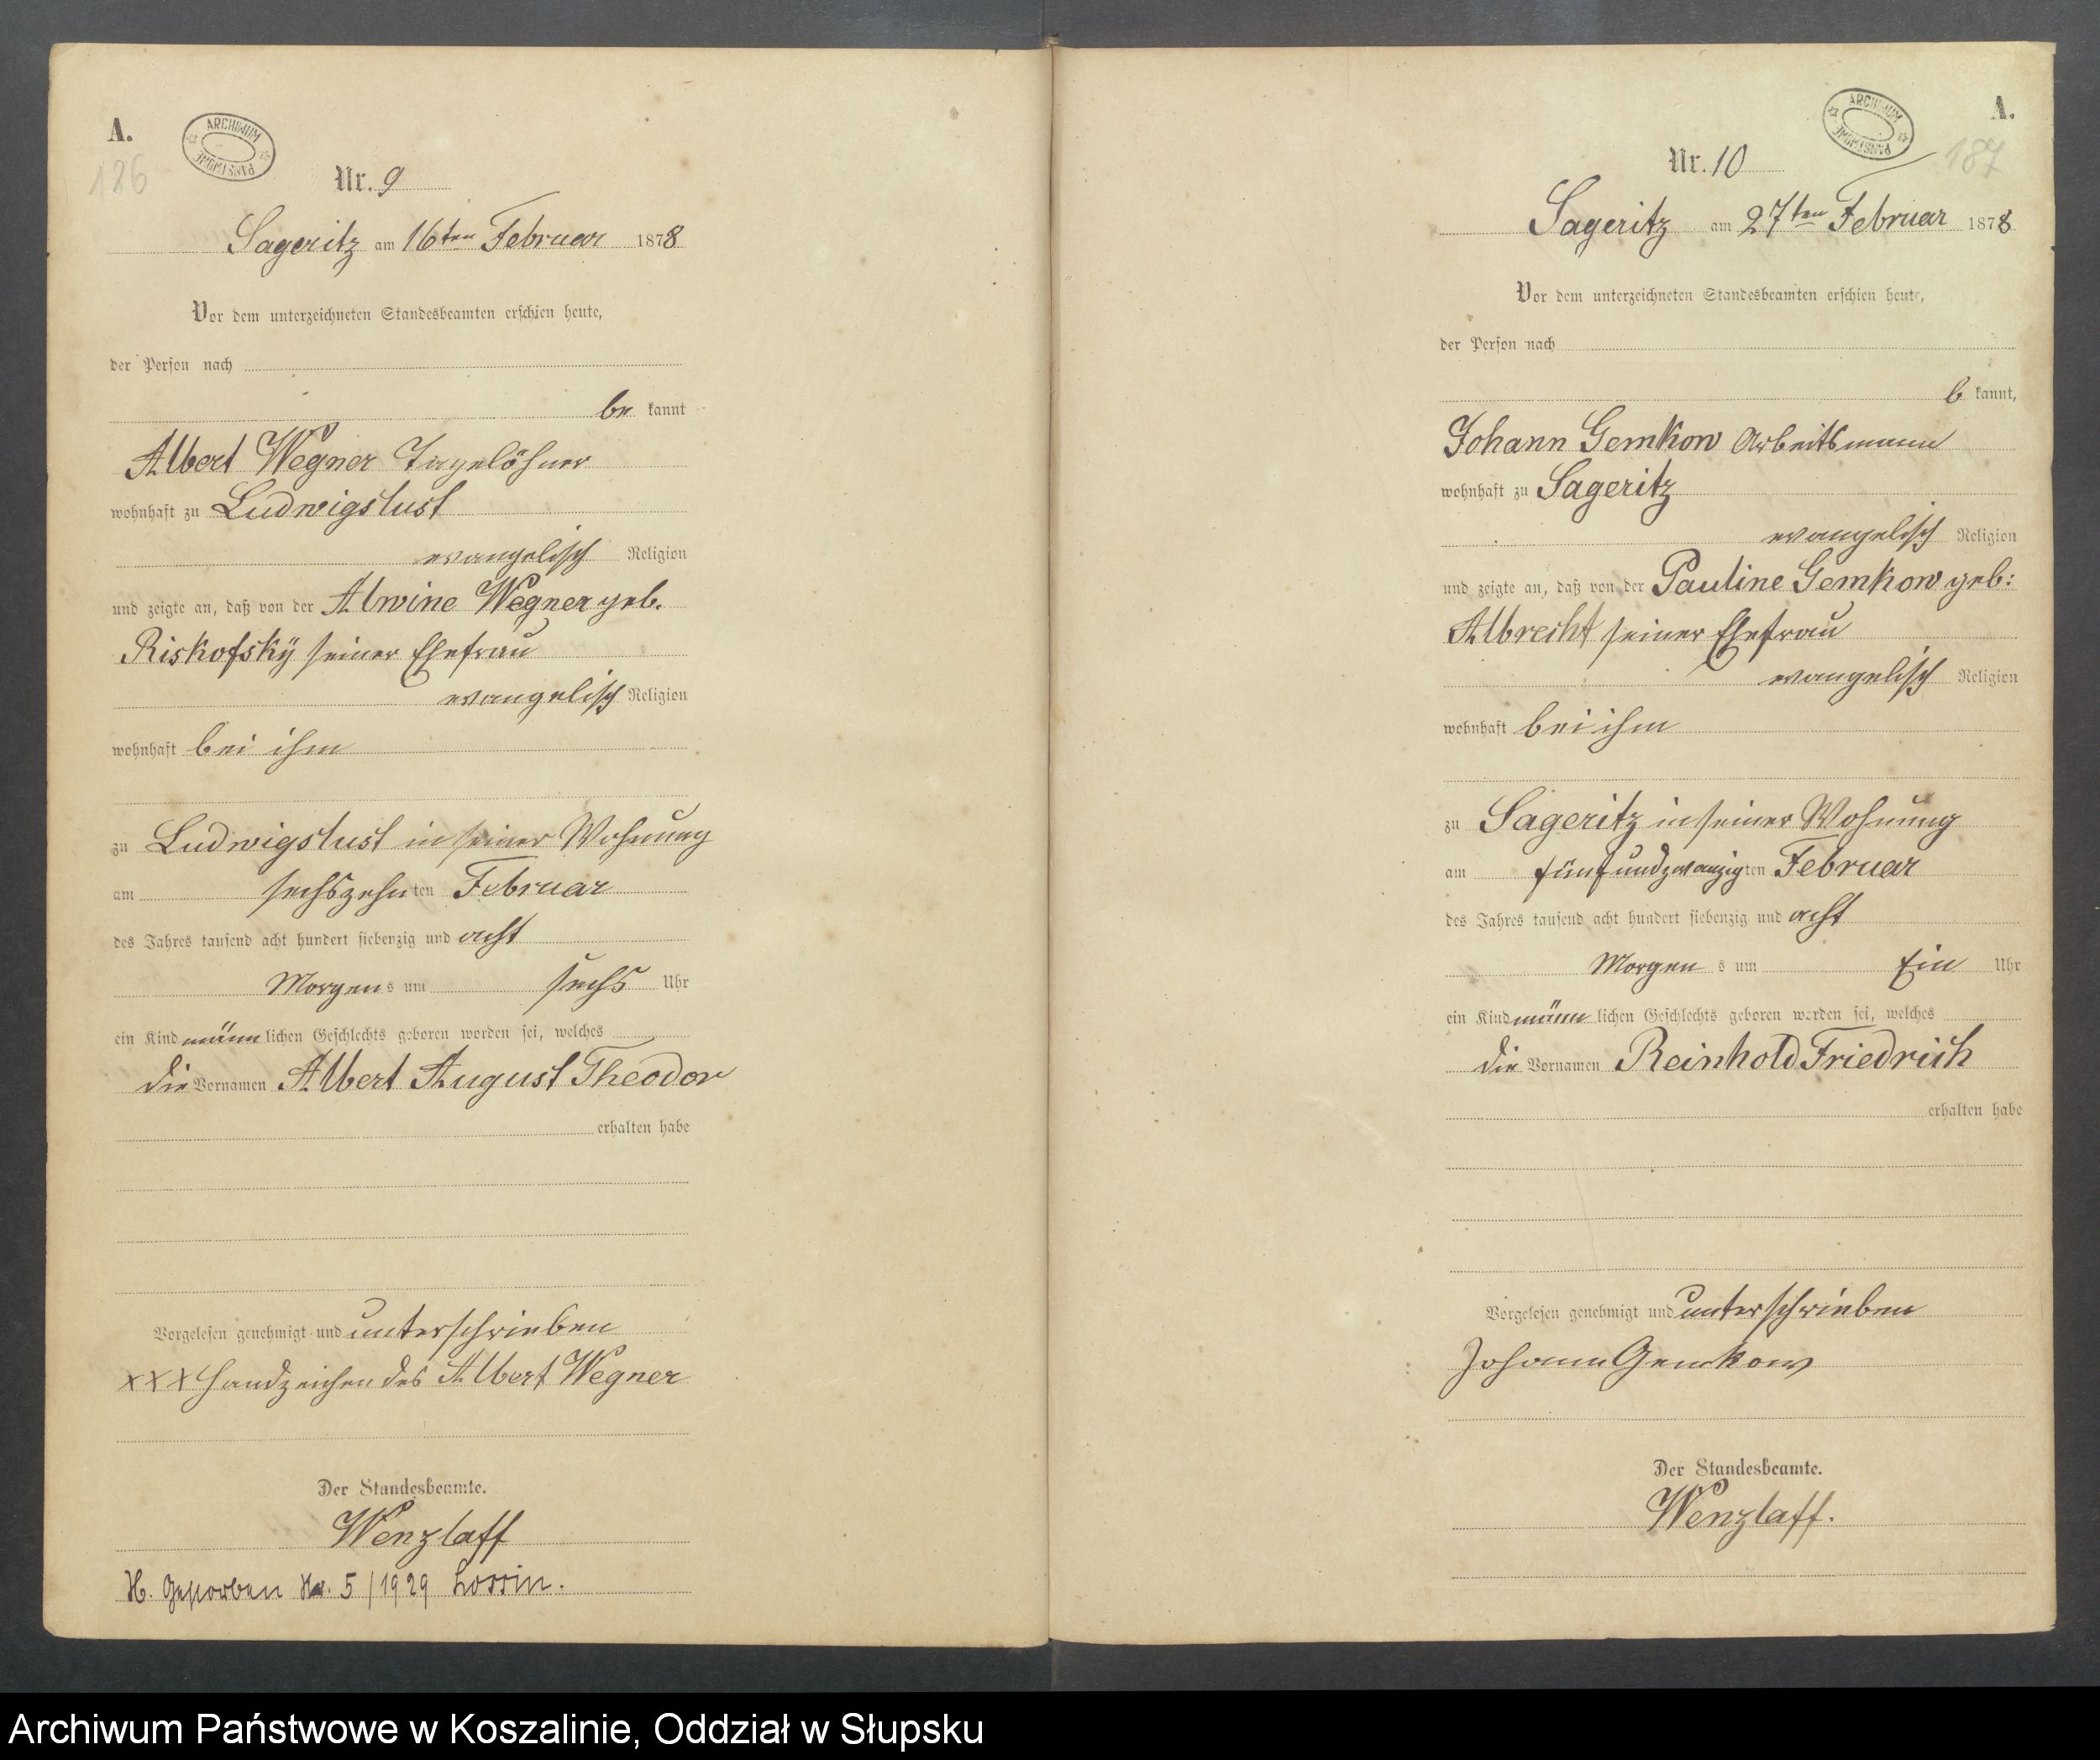 A.
ARCHIWUM PAŃSTWOWE
186
Nr. 9
Sageritz am 16ten Februar 1878
Vor dem unterzeichneten Standesbeamten erschien heute,
der Person nach
be kannt
Albert Wegner Tagelöhner
wohnhaft zu Ludwigslust
evangelisch Religion
und zeigte an, daß von der Alwine Wegner geb.
Riskofsky seiner Ehefrau
evangelisch Religion
wohnhaft bei ihm
zu Ludwigslust in seiner Wohnung
am sechszehn ten Februar
des Jahres tausend acht hundert siebenzig und acht
Morgen s um sechs Uhr
ein Kind männ lichen Geschlechts geboren worden sei, welches
die Vornamen Albert August Theodor
erhalten habe
Vorgelesen genehmigt und unterschrieben
xxx Handzeichen des Albert Wegner
Der Standesbeamte.
Wenzlaff
H. Gestorben Nr. 5/1929 Lossin.
A.
ARCHIWUM PAŃSTWOWE
187
Nr. 10
Sageritz am 27ten Februar 1878
Vor dem unterzeichneten Standesbeamten erschien heute,
der Person nach
b kannt,
Johann Gemkow Arbeitsmann
wohnhaft zu Sageritz
evangelisch Religion
und zeigte an, daß von der Pauline Gemkow geb:
Albrecht seiner Ehefrau
evangelisch Religion
wohnhaft bei ihm
zu Sageritz in seiner Wohnung
am fünfundzwanzig ten Februar
des Jahres tausend acht hundert siebenzig und acht
Morgen s um Ein Uhr
ein Kind männ lichen Geschlechts geboren worden sei, welches
die Vornamen Reinhold Friedrich
erhalten habe
Vorgelesen genehmigt und unterschrieben
Johann Gemkow
Der Standesbeamte.
Wenzlaff.
Archiwum Państwowe w Koszalinie, Oddział w Słupsku